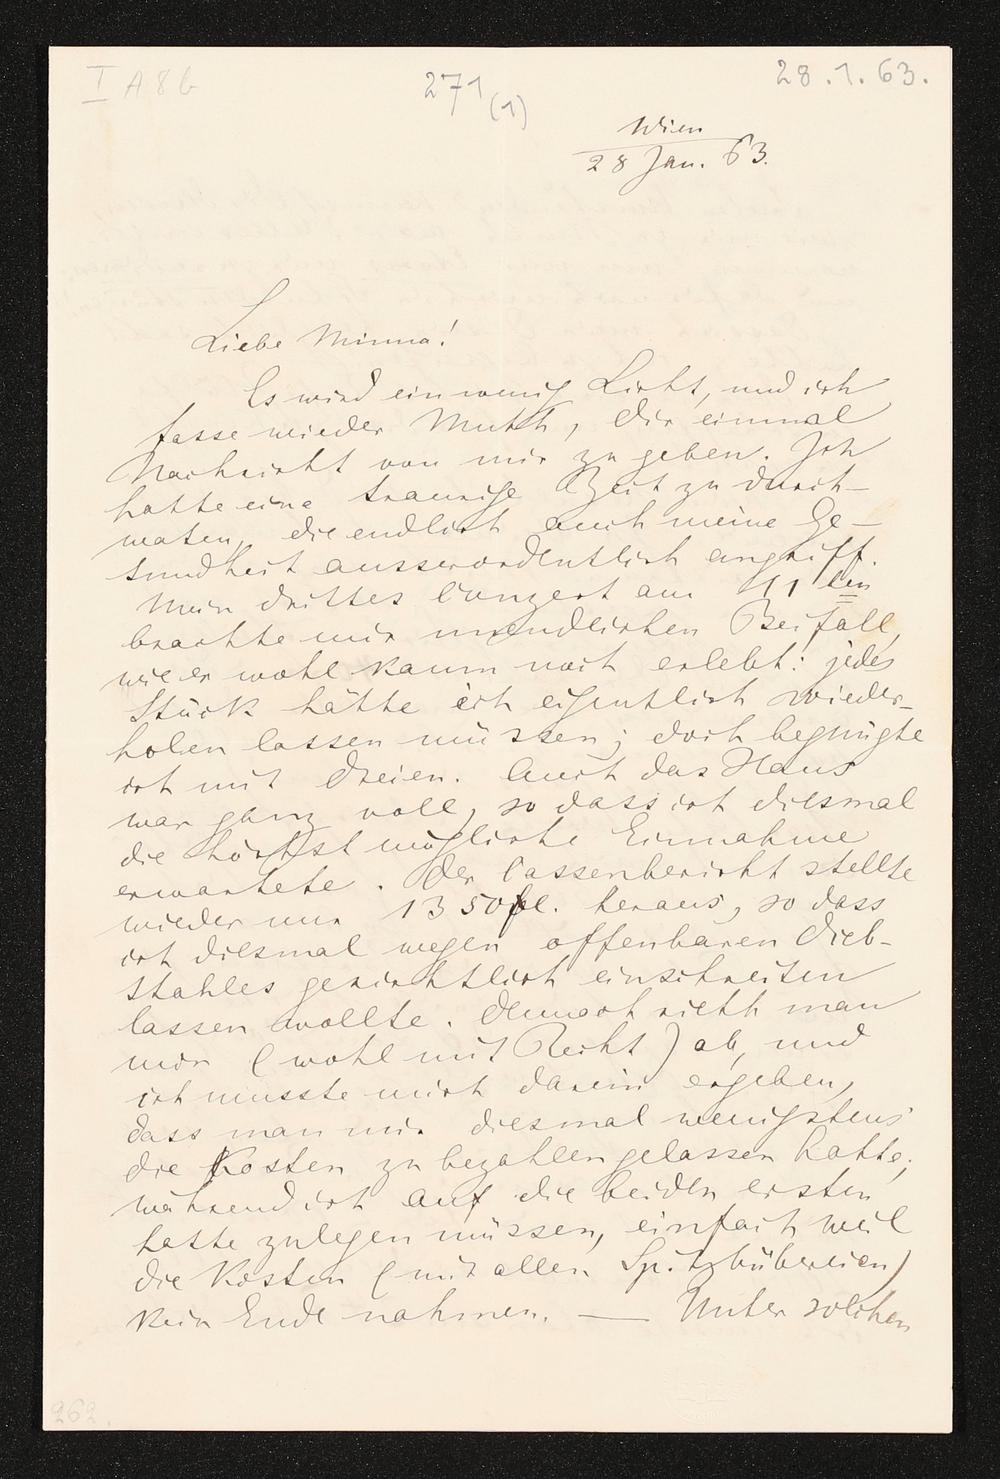 I A 8 b
271 (1)
28.1.63.
Wien
28 Jan. 63.
Liebe Minna!
Es wird ein wenig Licht, und ich
fasse wieder Muth, Dir einmal
Nachricht von mir zu geben. Ich
hatte eine traurige Zeit zu durch-
waten, die endlich auch meine Ge-
sundheit ausserordentlich angriff.
Mein drittes Conzert am 11ten
brachte mir unendlichen Beifall,
wie er wohl kaum noch erlebt: jedes
Stück hätte ich eigentlich wieder-
holen lassen müssen; doch begnügte
ich mit dreien. Auch das Haus
war ganz voll, so dass ich diesmal
die höchst mögliche Einnahme
erwartete. Der Cassenbericht stellte
wieder nur 1350 fl. heraus, so dass
ich diesmal wegen offenbaren Dieb-
stahles gerichtlich einschreiten
lassen wollte. Dennoch rieth man
mir (wohl mit Recht) ab, und
ich musste mich darein ergeben,
dass man mir diesmal wenigstens
die Kosten zu bezahlen gelassen hatte,
während ich auf die beiden ersten
hatte zulegen müssen, einfach weil
die Kosten (mit allen Spitzbübereien)
kein Ende nahmen. — Unter solchen
262.